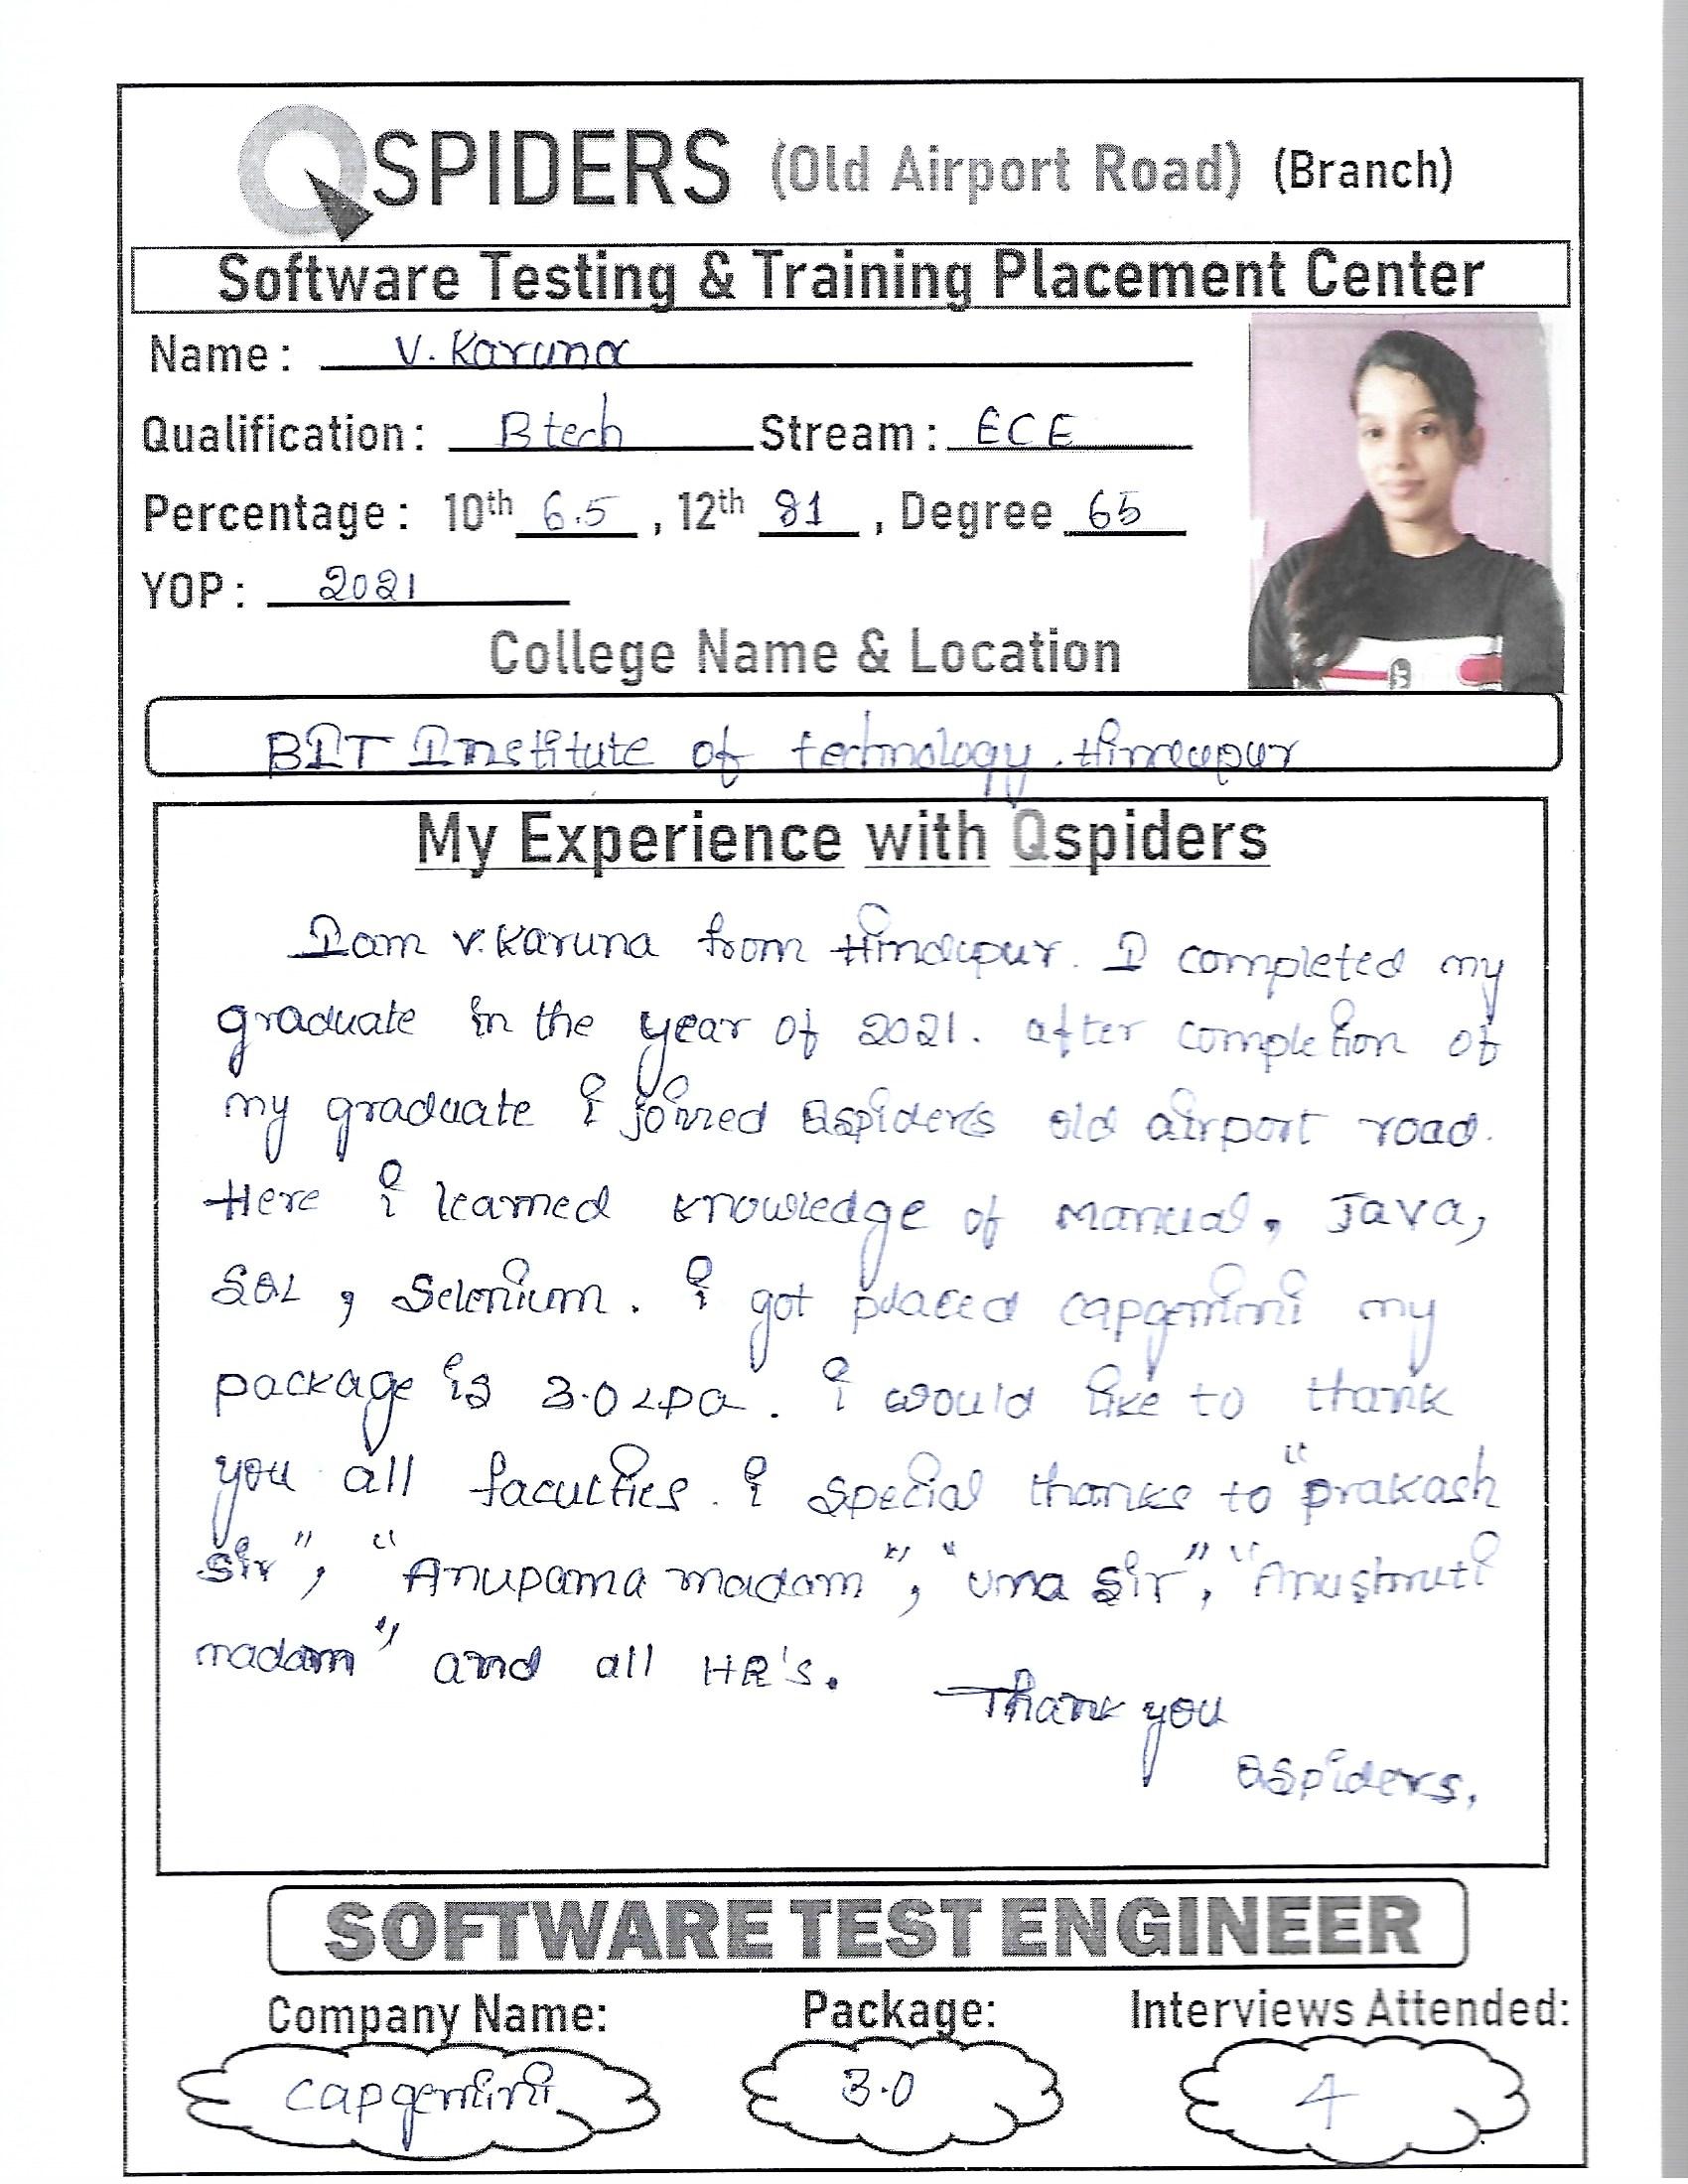 QSPIDERS (Old Airport Road) (Branch)
Software Testing & Training Placement Center
Name : V. Karuna
Qualification : Btech Stream : ECE
Percentage : 10th 6.5 , 12th 81 , Degree 65
YOP : 2021
College Name & Location
BIT Institute of technology. Hindupur
My Experience with Qspiders
I am V. Karuna from Hindupur. I completed my
graduate in the year of 2021. after completion of
my graduate i joined Qspiders old airport road.
Here i learned knowledge of Manual, Java,
SQL , Selenium. i got placed capgemini my
package is 3.0 LPA. i would like to thank
you all faculties. i special thanks to "prakash
sir", "Anupama madam", "uma sir", "Anushruti
madam" and all HR's.
Thank you
Qspiders.
SOFTWARE TEST ENGINEER
Company Name: Package: Interviews Attended:
capgemini 3.0 4